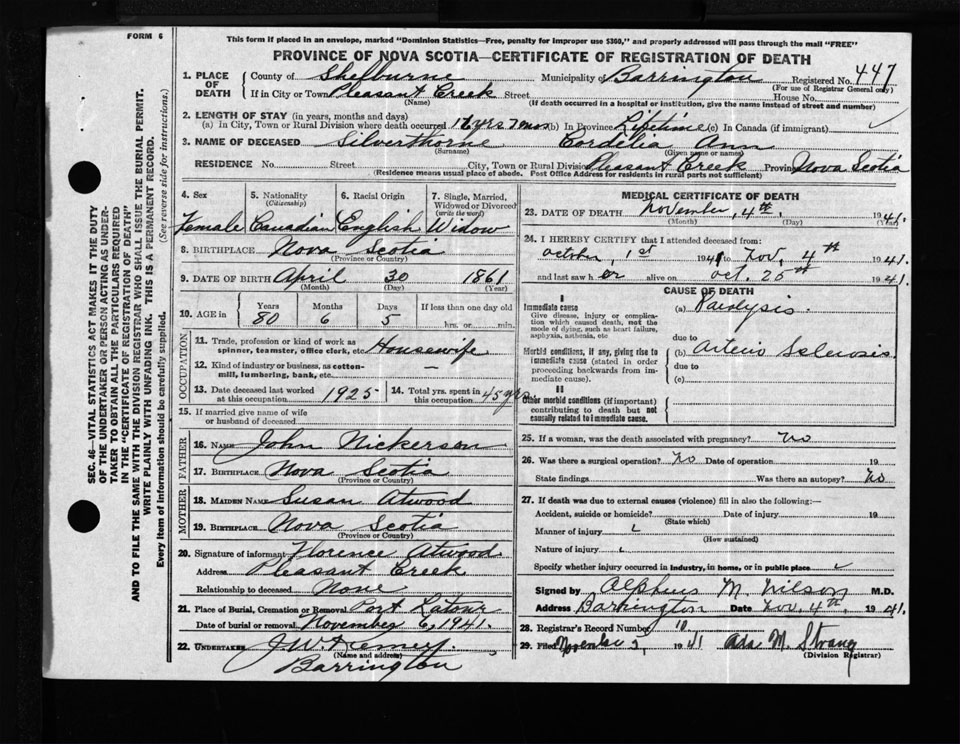 FORM 6
This form if placed in an envelope, marked "Dominion Statistics—Free, penalty for improper use $300," and properly addressed will pass through the mail "FREE"
PROVINCE OF NOVA SCOTIA—CERTIFICATE OF REGISTRATION OF DEATH
1. PLACE OF DEATH County of Shelburne Municipality of Barrington Registered No. 447
(For use of Registrar General only)
If in City or Town Pleasant Creek Street House No.
(Name) (If death occurred in a hospital or institution, give its name instead of street and number)
2. LENGTH OF STAY (in years, months and days)
(a) In City, Town or Rural Division where death occurred 16 yrs 7 mos (b) In Province Lifetime (c) In Canada (if immigrant)
3. NAME OF DECEASED Silverthorne Cordelia Ann
(Surname) (Given name or names)
RESIDENCE No. Street City, Town or Rural Division Pleasant Creek Province Nova Scotia
(Residence means usual place of abode. Post Office Address for residents in rural parts not sufficient)
4. Sex 5. Nationality (Citizenship) 6. Racial Origin 7. Single, Married, Widowed or Divorced (write the word)
Female Canadian English Widow
8. BIRTHPLACE Nova Scotia
(Province or Country)
9. DATE OF BIRTH April 30 1861
(Month) (Day) (Year)
10. AGE in Years Months Days If less than one day old
80 6 5 hrs. or min.
OCCUPATION
11. Trade, profession or kind of work as spinner, teamster, office clerk, etc. Housewife
12. Kind of industry or business, as cotton-mill, lumbering, bank, etc. —
13. Date deceased last worked at this occupation 1925 14. Total yrs. spent in this occupation 45 yrs
15. If married give name of wife or husband of deceased
FATHER
16. Name John Nickerson
17. Birthplace Nova Scotia
(Province or Country)
MOTHER
18. Maiden Name Susan Atwood
19. Birthplace Nova Scotia
(Province or Country)
20. Signature of informant Florence Atwood
Address Pleasant Creek
Relationship to deceased None
21. Place of Burial, Cremation or Removal Port Latour
Date of burial or removal November 6, 1941.
22. UNDERTAKER J W Kenney.
(Name and address)
Barrington
MEDICAL CERTIFICATE OF DEATH
23. DATE OF DEATH November, 4th, 1941.
(Month) (Day) (Year)
24. I HEREBY CERTIFY that I attended deceased from:
October, 1st 1941 to Nov. 4th 1941.
and last saw her alive on Oct. 25th 1941.
CAUSE OF DEATH
I
Immediate cause (a) Paralysis.
Give disease, injury or complication which caused death, not the mode of dying, such as heart failure, asphyxia, asthenia, etc
due to
Morbid conditions, if any, giving rise to immediate cause (stated in order proceeding backwards from immediate cause). (b) Arterio Sclerosis.
due to
(c)
II
Other morbid conditions (if important) contributing to death but not causally related to immediate cause.
25. If a woman, was the death associated with pregnancy? No
26. Was there a surgical operation? No Date of operation 19
State findings Was there an autopsy? No
27. If death was due to external causes (violence) fill in also the following:—
Accident, suicide or homicide? Date of injury 19
(State which)
Manner of injury
(How sustained)
Nature of injury
Specify whether injury occurred in industry, in home, or in public place
Signed by Alpheus M. Wilson M.D.
Address Barrington Date Nov. 4th. 1941.
28. Registrar's Record Number 10
29. Filed November 5, 1941 Ada M. Strang
(Division Registrar)
SEC. 46—VITAL STATISTICS ACT MAKES IT THE DUTY
OF THE UNDERTAKER OR PERSON ACTING AS UNDER-
TAKER TO OBTAIN ALL THE PARTICULARS REQUIRED
IN THE "CERTIFICATE OF REGISTRATION OF DEATH"
AND TO FILE THE SAME WITH THE DIVISION REGISTRAR WHO SHALL ISSUE THE BURIAL PERMIT.
WRITE PLAINLY WITH UNFADING INK. THIS IS A PERMANENT RECORD.
Every item of information should be carefully supplied. (See reverse side for instructions.)